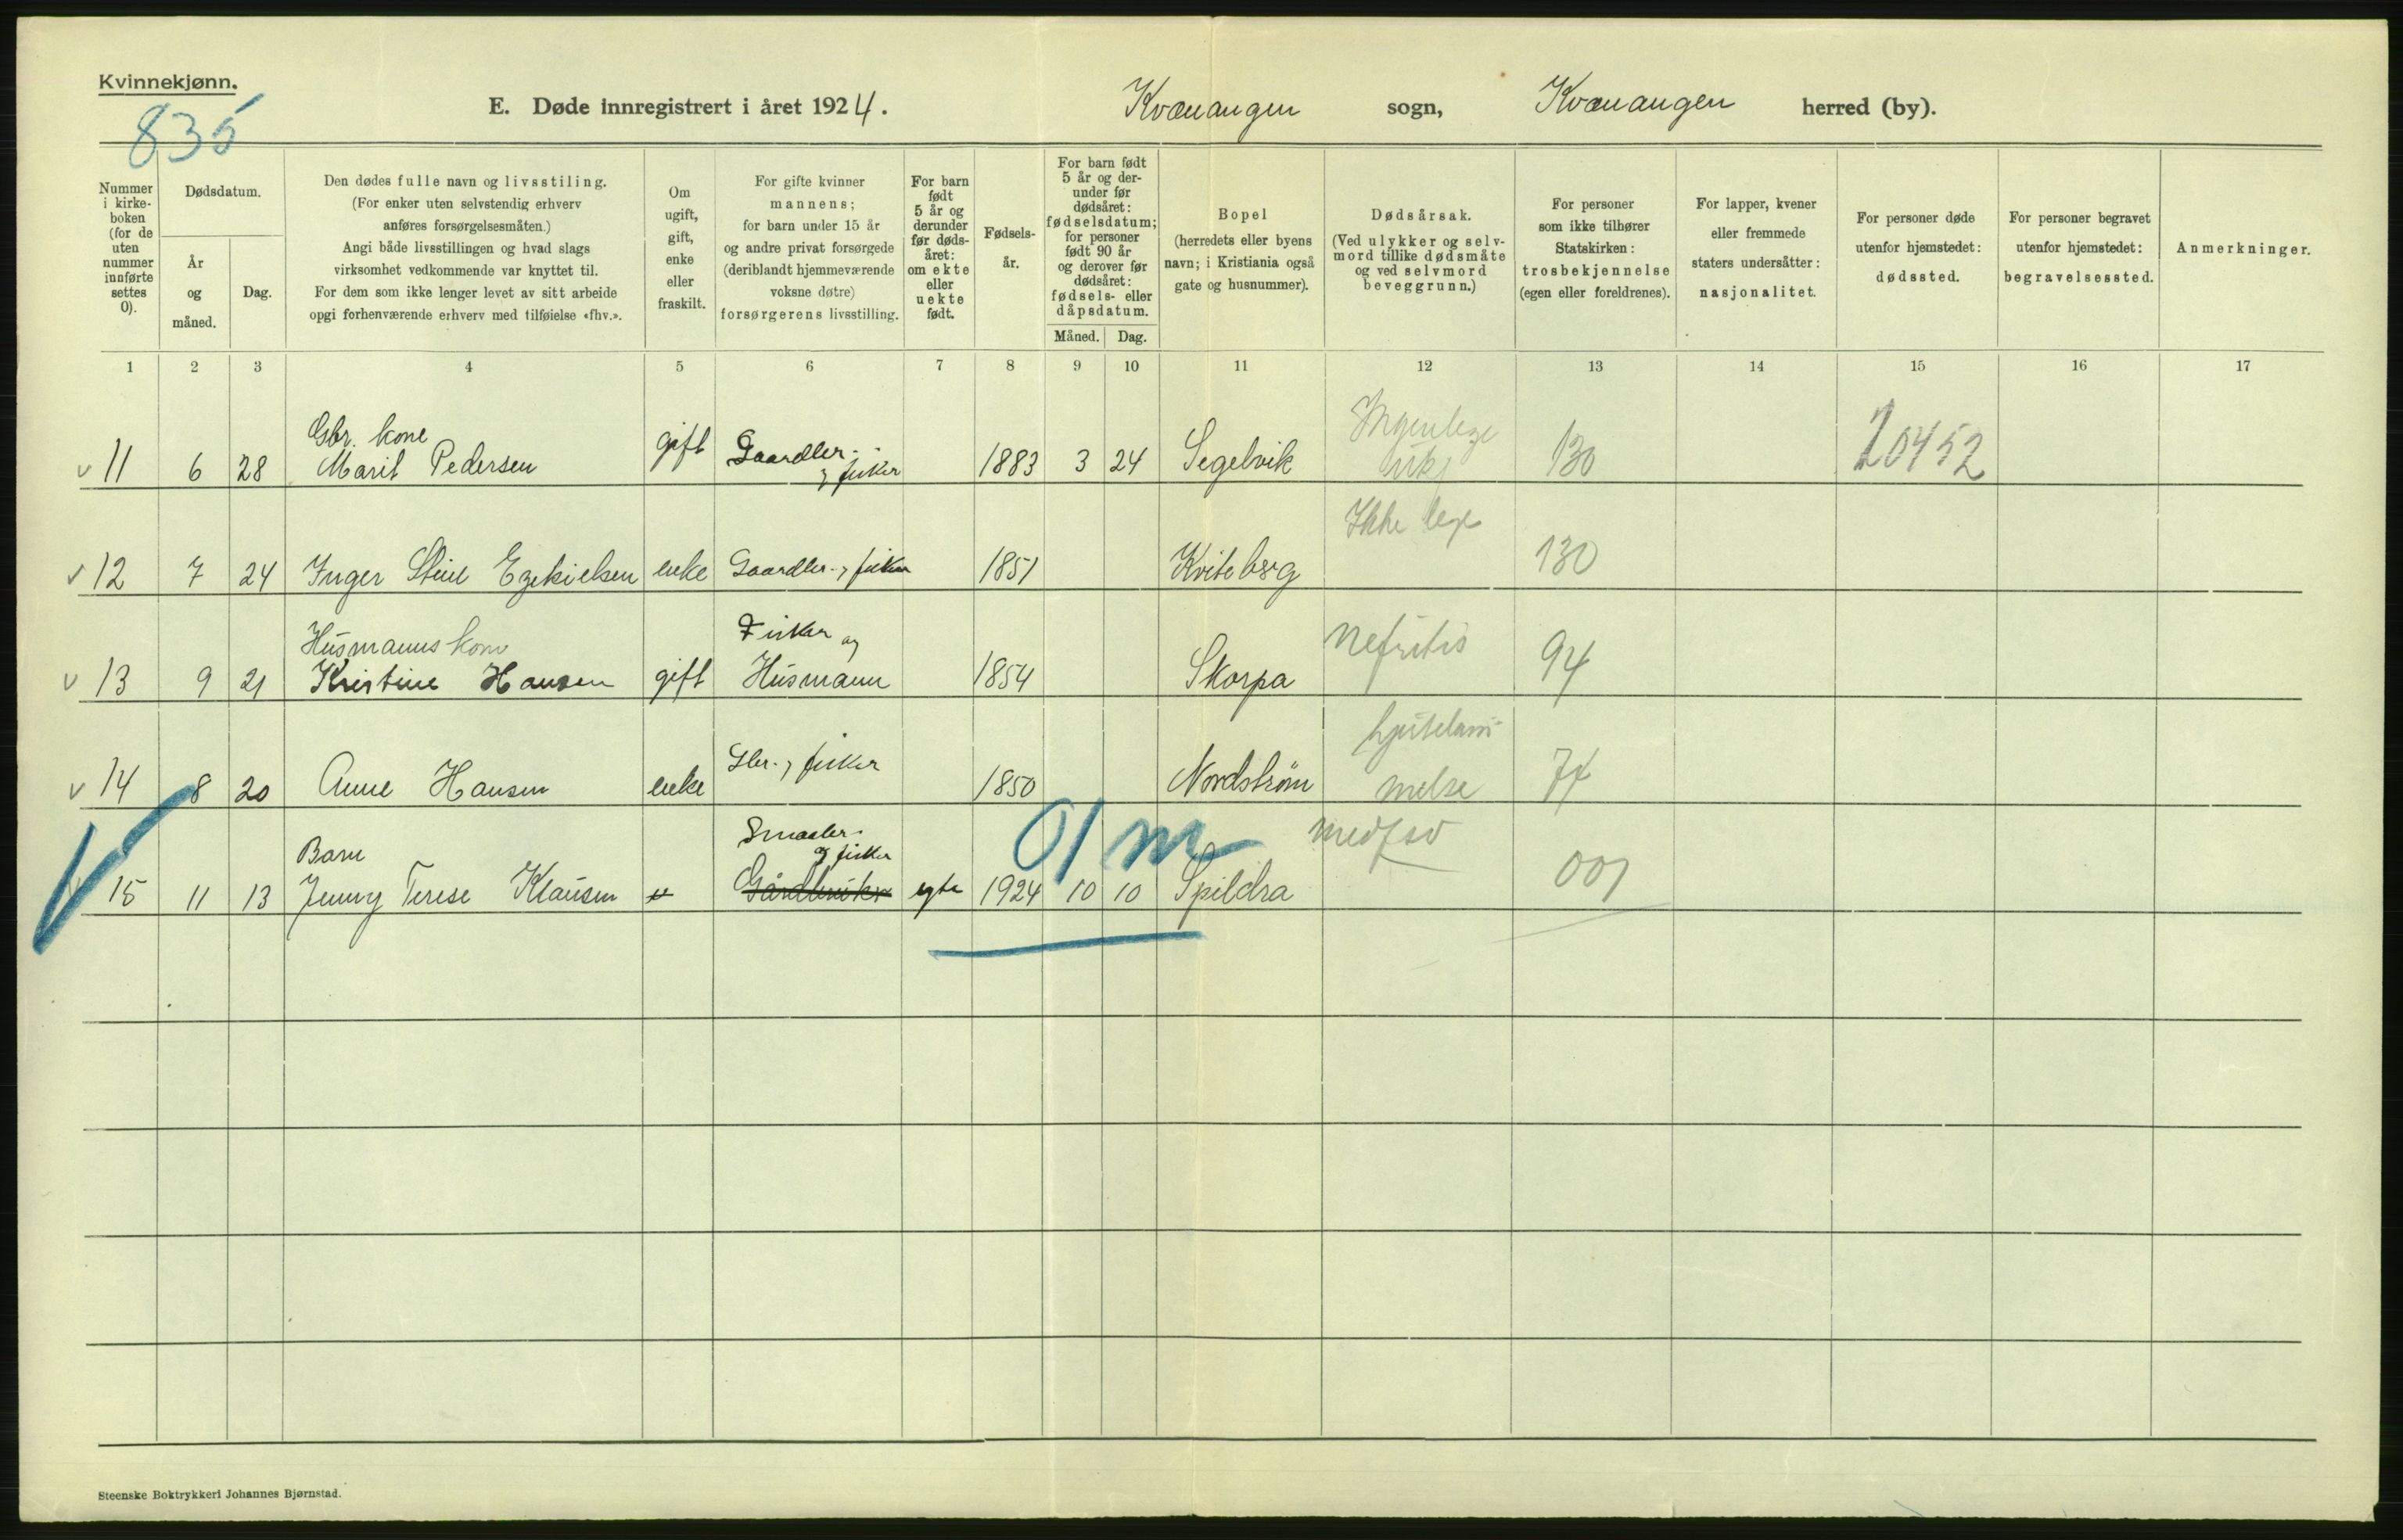 Kvinnekjønn.
835
E. Døde innregistrert i året 1924.
Kvænangen sogn, Kvænangen herred (by).
Nummer i kirkeboken (for de uten nummer innførte settes 0).
Dødsdatum.
År og måned.
Dag.
Den dødes fulle navn og livsstiling.
(For enker uten selvstendig erhverv
anføres forsørgelsesmåten.)
Angi både livsstillingen og hvad slags
virksomhet vedkommende var knyttet til.
For dem som ikke lenger levet av sitt arbeide
opgi forhenværende erhverv med tilføielse «fhv.».
Om
ugift,
gift,
enke
eller
fraskilt.
For gifte kvinner
mannens;
for barn under 15 år
og andre privat forsørgede
(deriblandt hjemmeværende
voksne døtre)
forsørgerens livsstilling.
For barn
født
5 år og
derunder
før døds-
året:
om ekte
eller
uekte
født.
Fødsels-
år.
For barn født
5 år og der-
under før
dødsåret:
fødselsdatum;
for personer
født 90 år
og derover før
dødsåret:
fødsels- eller
dåpsdatum.
Måned. Dag.
Bopel
(herredets eller byens
navn; i Kristiania også
gate og husnummer).
Dødsårsak.
(Ved ulykker og selv-
mord tillike dødsmåte
og ved selvmord
beveggrunn.)
For personer
som ikke tilhører
Statskirken:
trosbekjennelse
(egen eller foreldrenes).
For lapper, kvener
eller fremmede
staters undersåtter:
nasjonalitet.
For personer døde
utenfor hjemstedet:
dødssted.
For personer begravet
utenfor hjemstedet:
begravelsessted.
Anmerkninger.
1 2 3 4 5 6 7 8 9 10 11 12 13 14 15 16 17
Gbr. kone
v 11 6 28 Marit Pedersen gift Gaardbr. & fisker 1883 3 24 Segelvik Ingen lege 130 20452
v 12 7 24 Inger Stine Ezekielsen enke Gaardbr. & fisker 1851 Kviteberg Ikke lege 130
Husmanns kone Fisker og
v 13 9 21 Kristine Hansen gift Husmann 1854 Skorpa Nefritis 94
v 14 8 20 Anne Hansen enke Gbr. & fisker 1850 Nordstrøm hjertelam-
melse 74
Barn Smaabr. & fisker 01 m medfsv
15 11 13 Jenny Terese Klausen u Gårdbruker egte 1924 10 10 Spildra 001
Steenske Boktrykkeri Johannes Bjørnstad.